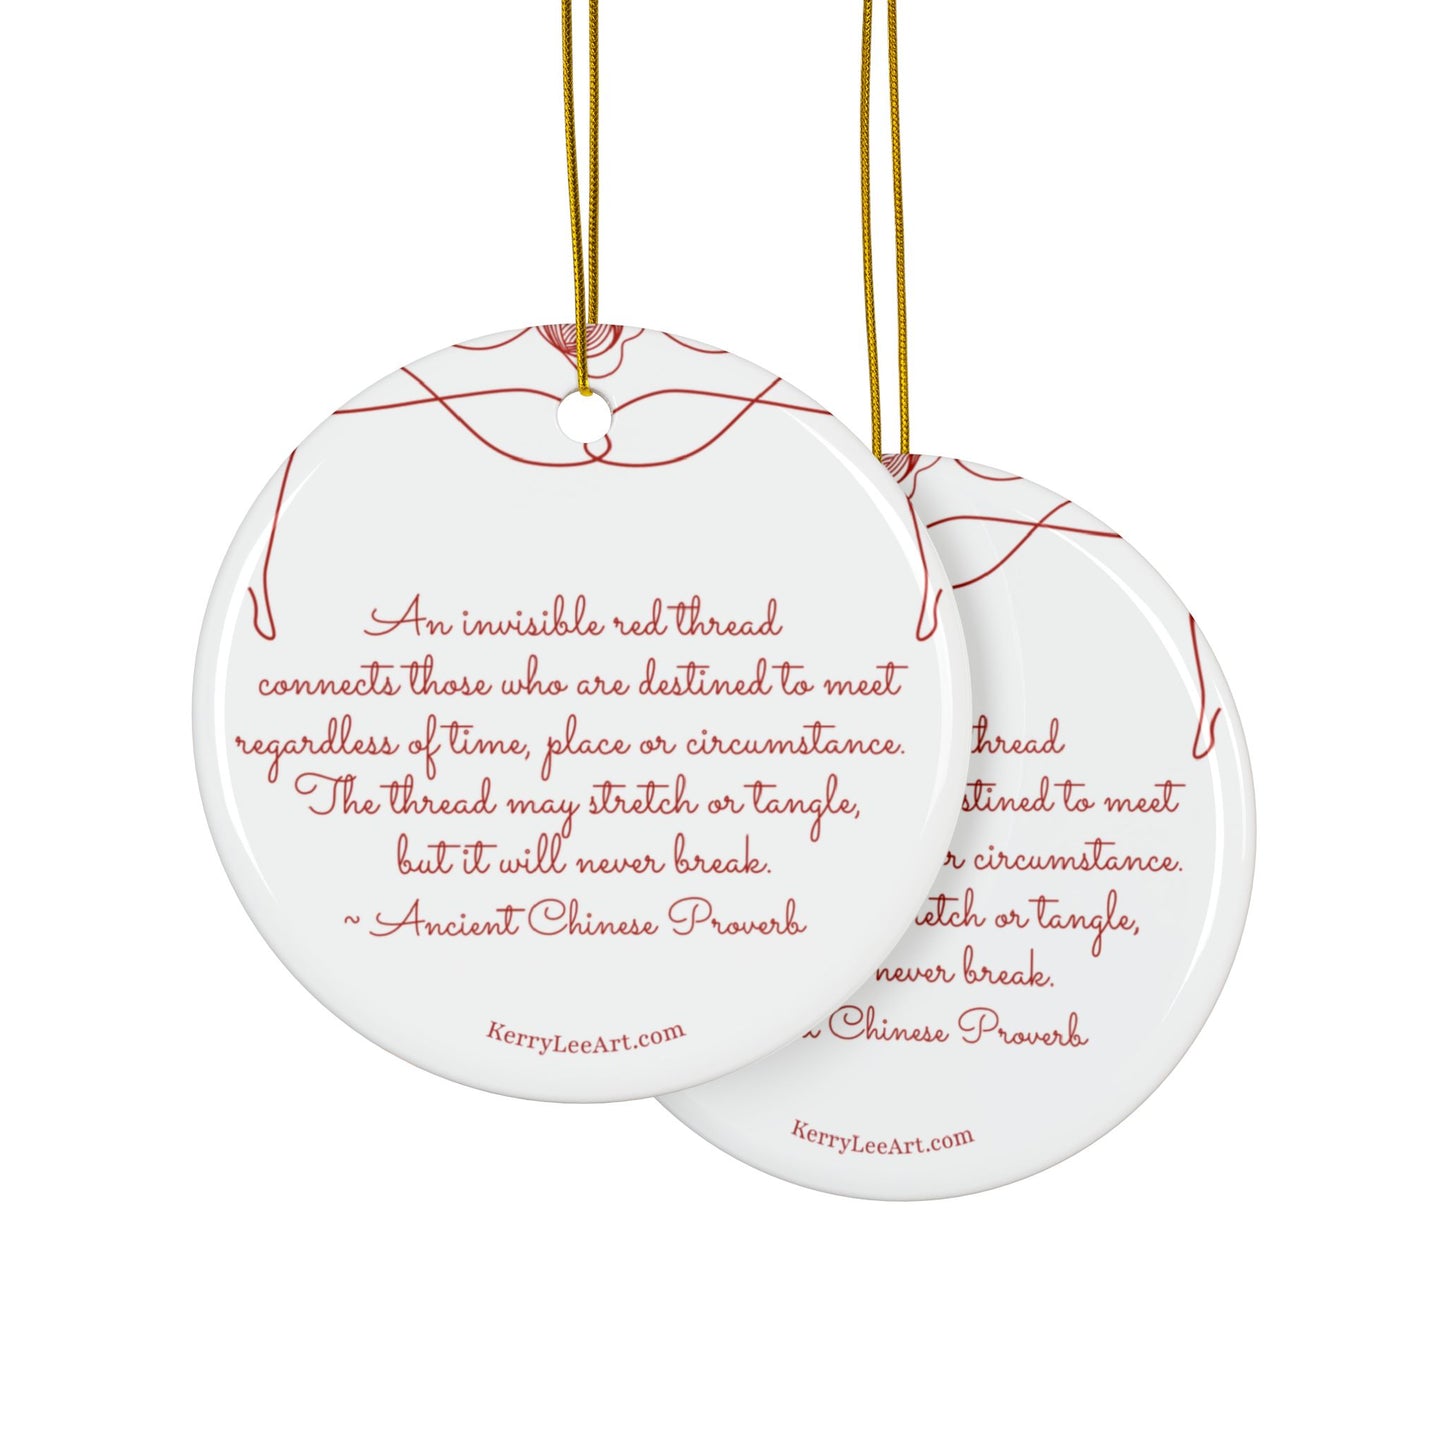 An invisible red thread
connects those who are destined to meet
regardless of time, place or circumstance.
The thread may stretch or tangle,
but it will never break.
~ Ancient Chinese Proverb
KerryLeeArt.com
thread
destined to meet
or circumstance.
stretch or tangle,
never break.
Chinese Proverb
KerryLeeArt.com